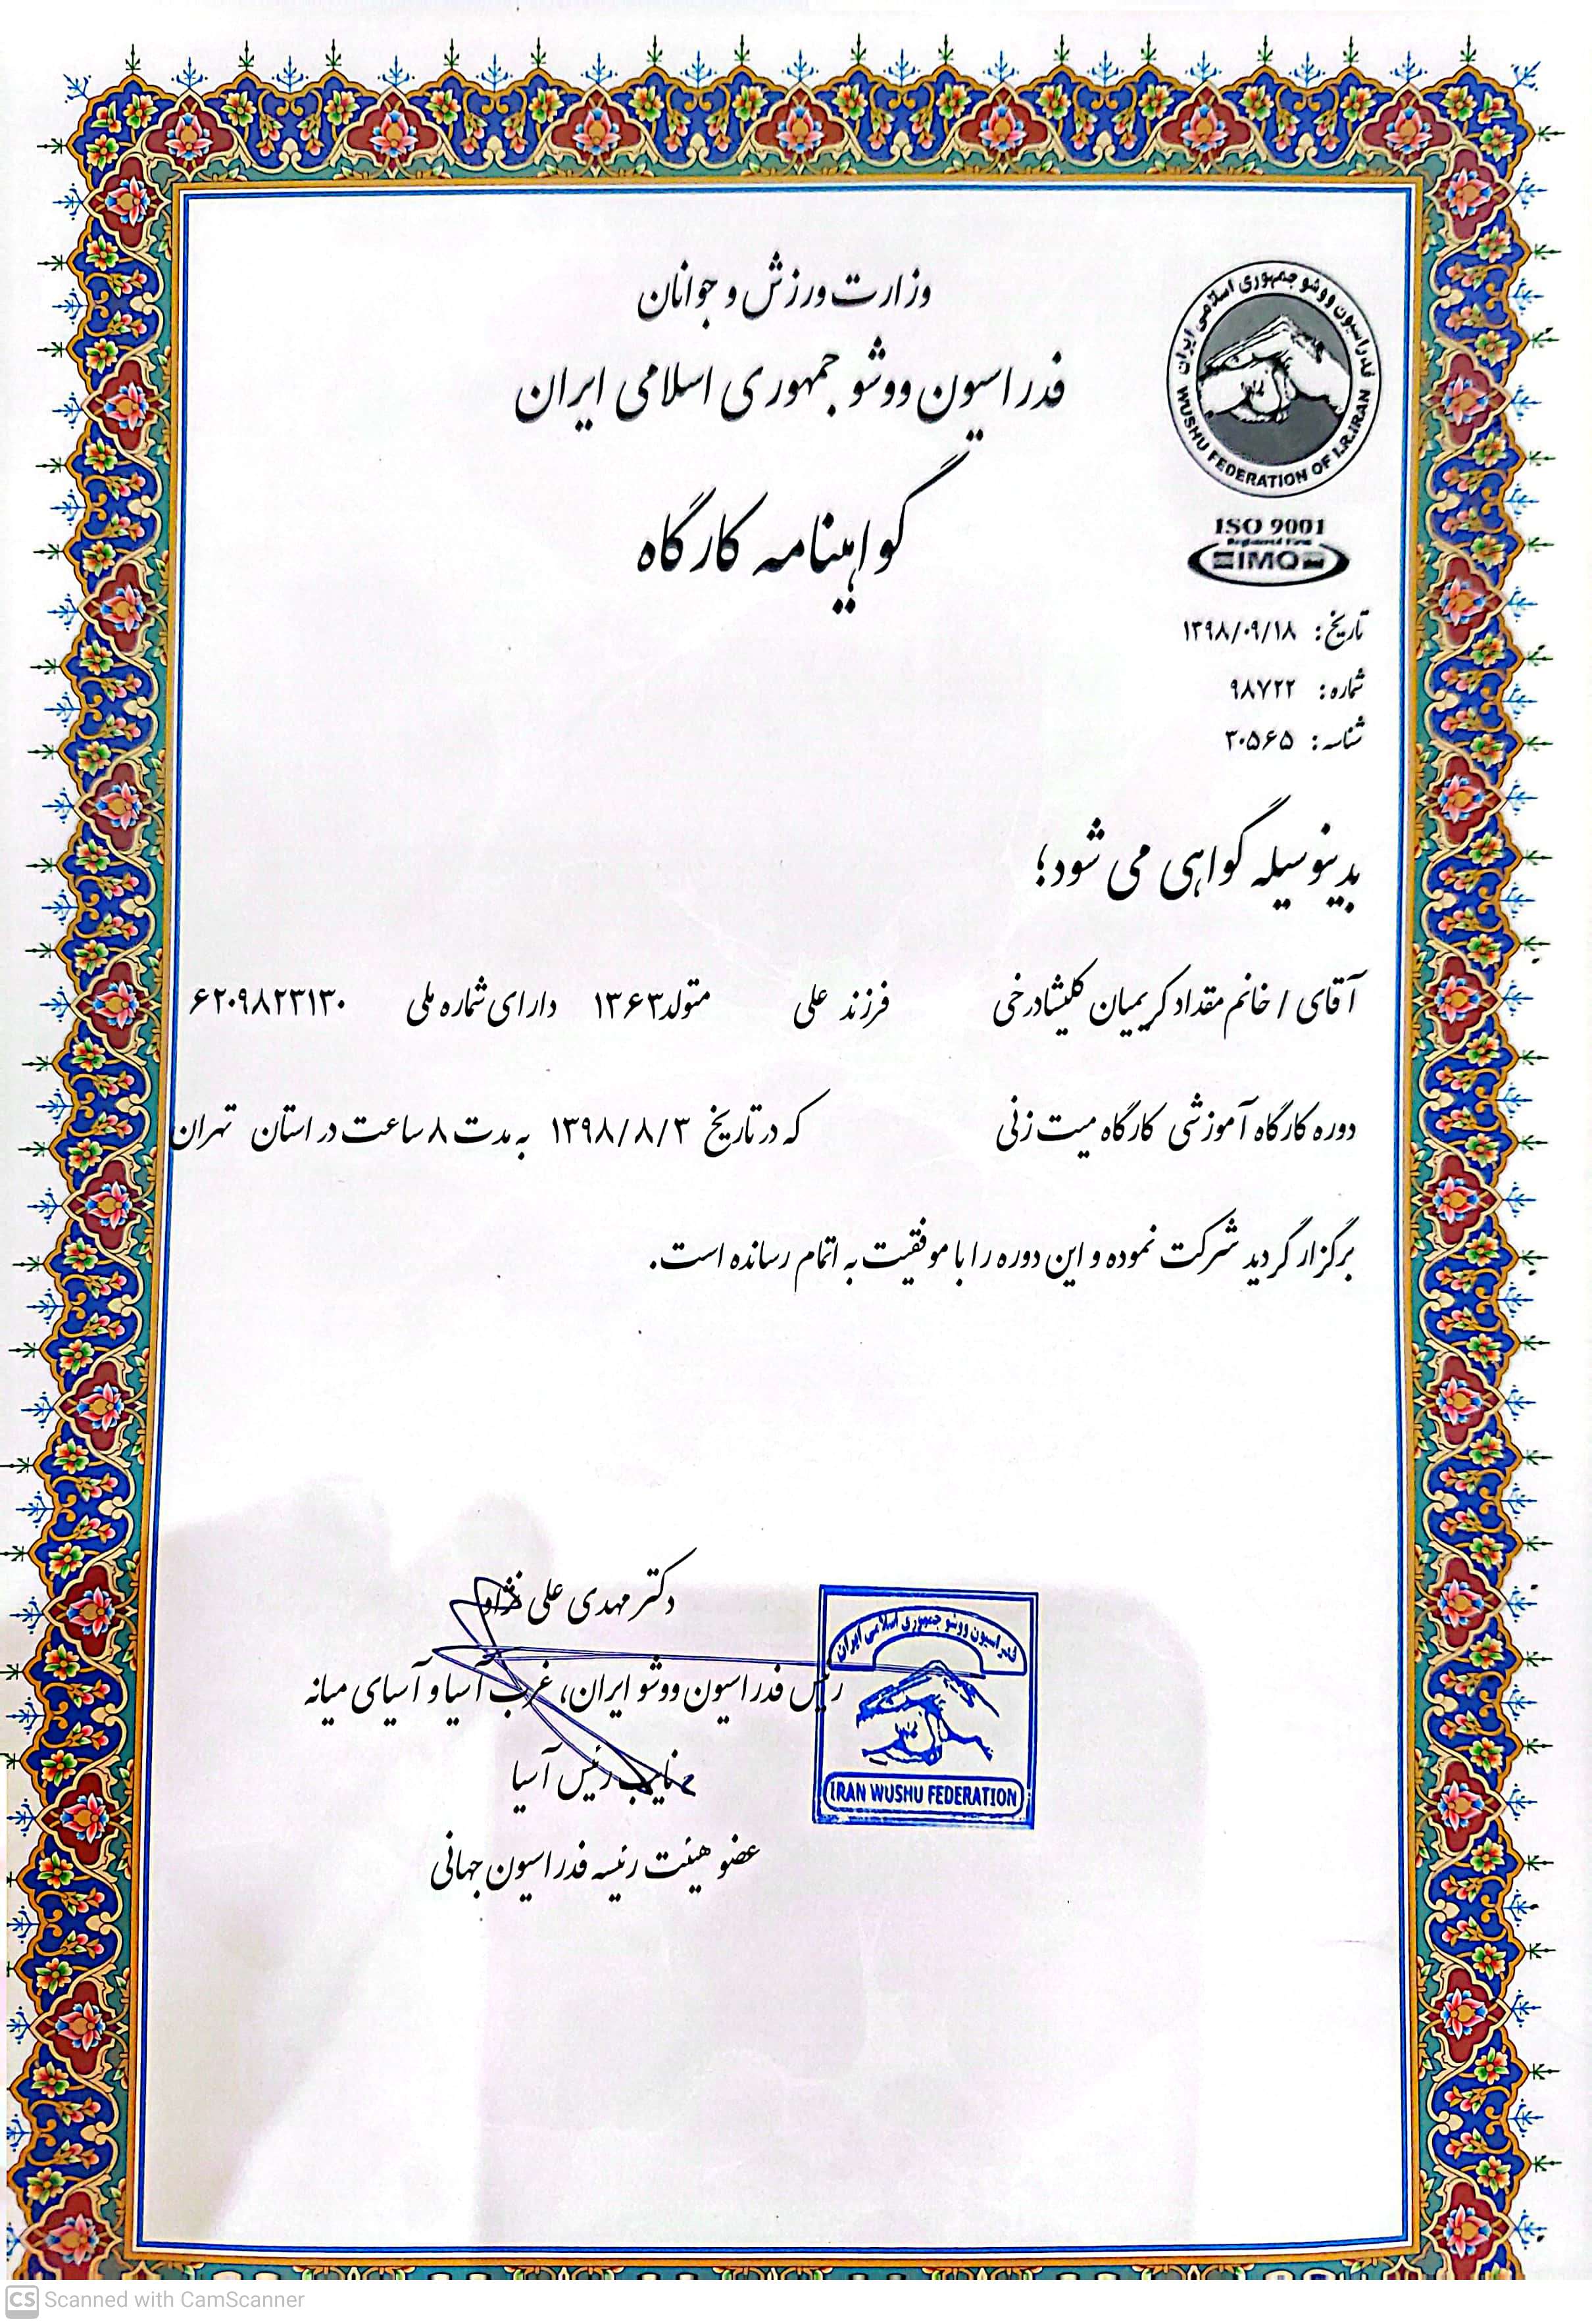 وزارت ورزش و جوانان
فدراسیون ووشو جمهوری اسلامی ایران
فدراسیون ووشو جمهوری اسلامی ایران
WUSHU FEDERATION OF I.R.IRAN
گواهینامه کارگاه
ISO 9001
Registered Firm
IMQ
تاریخ: ۱۳۹۸/۰۹/۱۸
شماره: ۹۸۷۲۲
شناسه: ۳۰۵۶۵
بدینوسیله گواهی می شود؛
آقای / خانم مقداد کریمیان کلیشادرخی فرزند علی متولد ۱۳۶۳ دارای شماره ملی ۶۲۰۹۸۲۳۱۳۰
دوره کارگاه آموزشی کارگاه میت زنی که در تاریخ ۱۳۹۸/۸/۳ به مدت ۸ ساعت در استان تهران
برگزار گردید شرکت نموده و این دوره را با موفقیت به اتمام رسانده است.
دکتر مهدی علی نژاد
رئیس فدراسیون ووشو ایران، غرب آسیا و آسیای میانه
و نایب رئیس آسیا
عضو هیئت رئیسه فدراسیون جهانی
فدراسیون ووشو جمهوری اسلامی ایران
IRAN WUSHU FEDERATION
CS Scanned with CamScanner